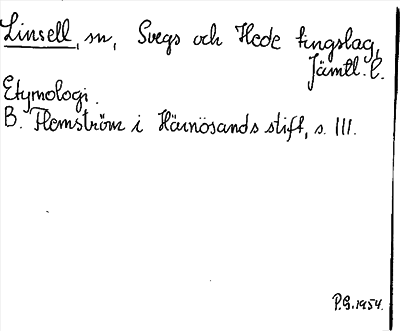 Linsell, sn, Svegs och Hede tingslag,
Jämtl. l.
Etymologi.
B. Flemström i Härnösands stift, s. 111.
P.G. 1954.